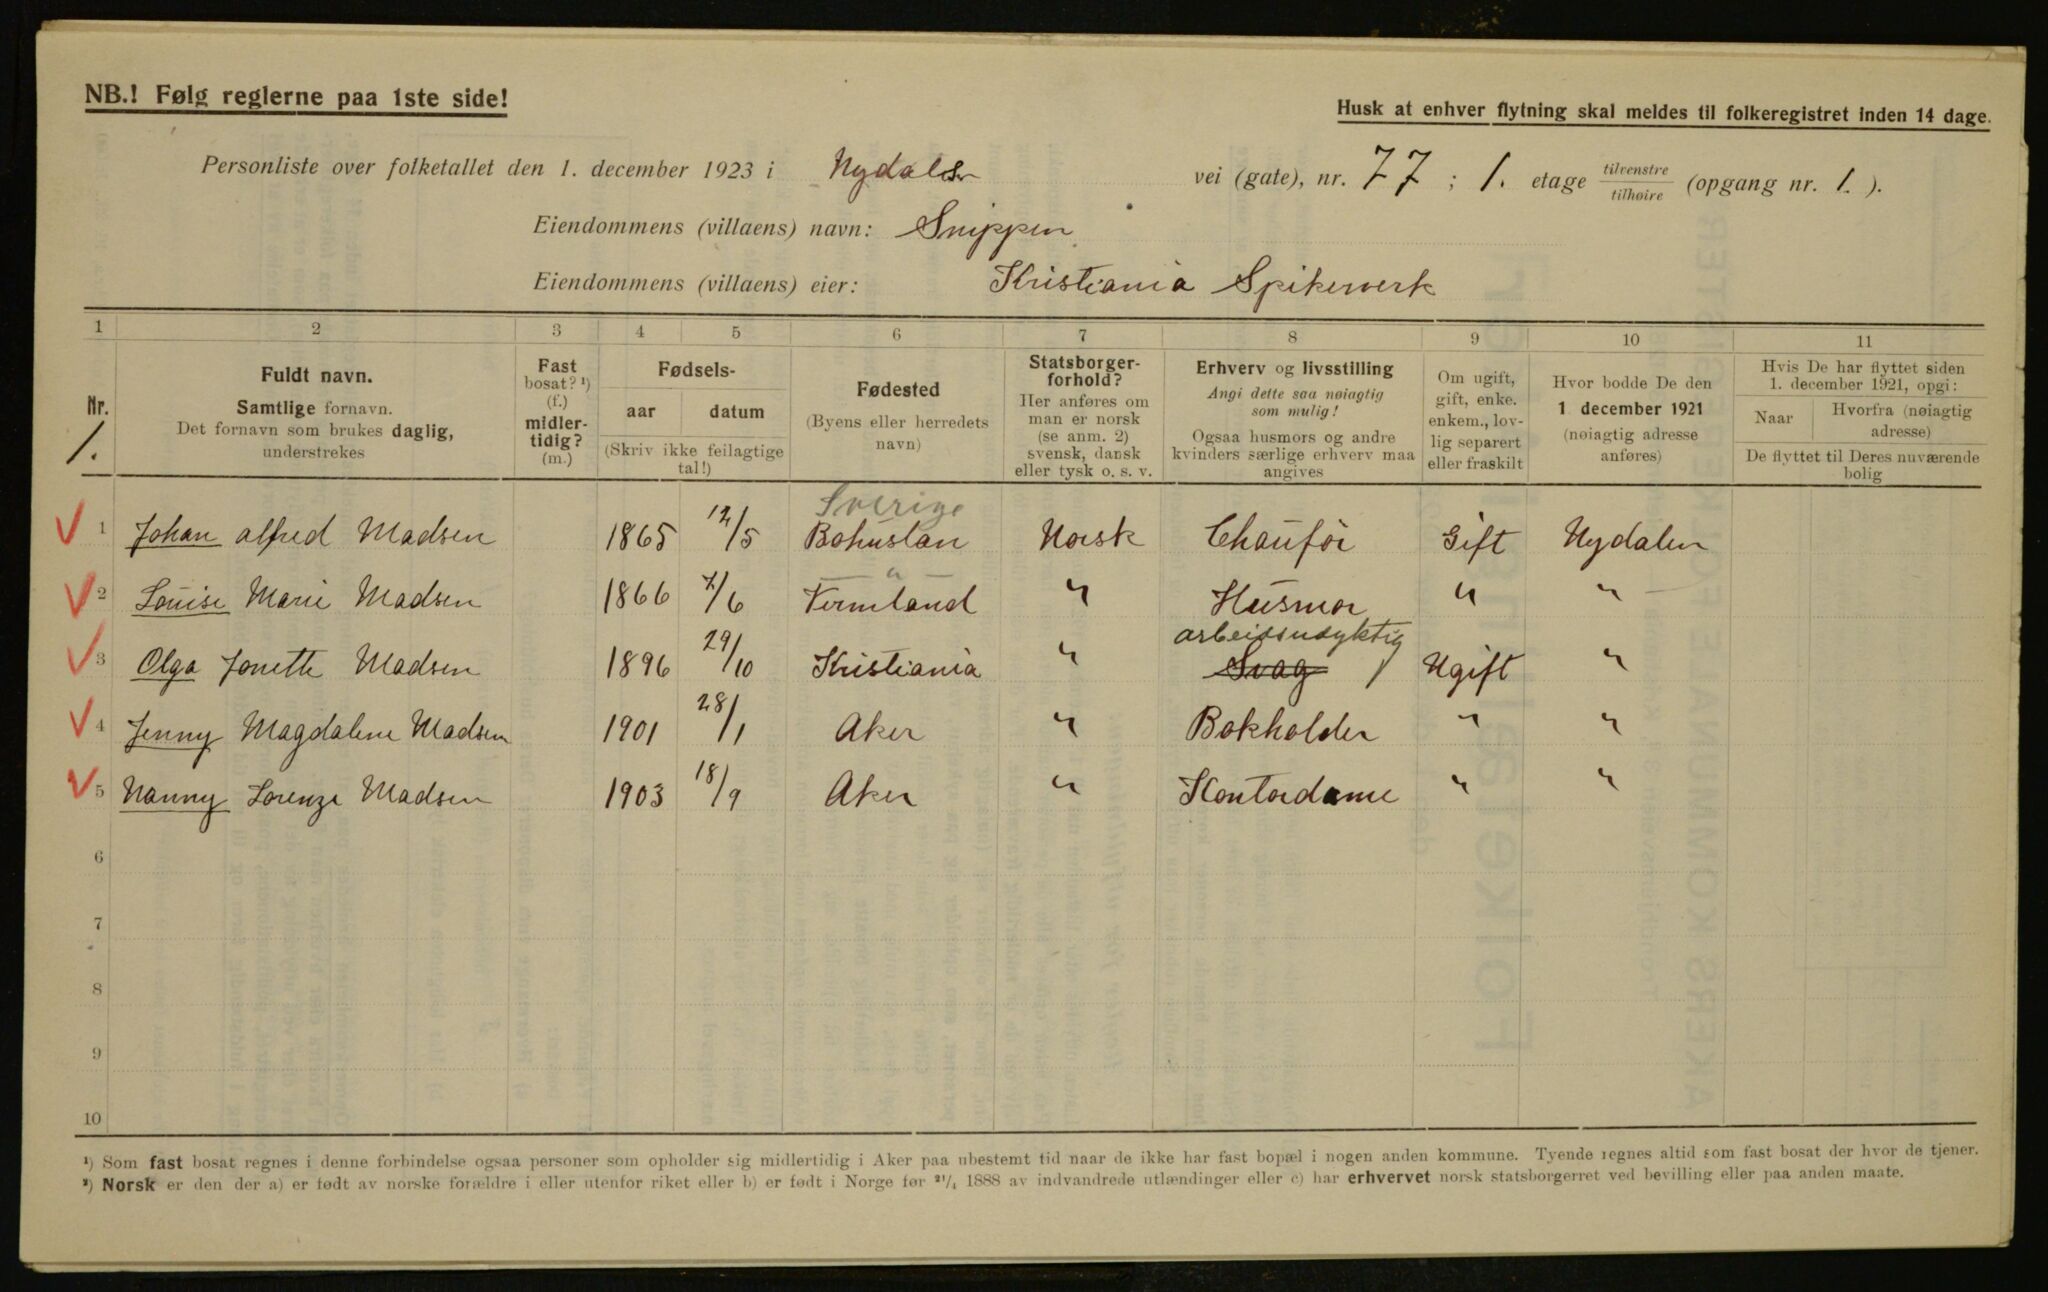 NB.! Følg reglerne paa 1ste side!
Husk at enhver flytning skal meldes til folkeregistret inden 14 dage.
Personliste over folketallet den 1. december 1923 i Nydalsv vei (gate), nr. 77; 1. etage tilvenstre / tilhøire (opgang nr. 1.).
Eiendommens (villaens) navn: Snippen
Eiendommens (villaens) eier: Kristiania Spikerverk
1 2 3 4 5 6 7 8 9 10 11
Nr. 1.
Fuldt navn.
Samtlige fornavn.
Det fornavn som brukes daglig,
understrekes
Fast
bosat? ¹)
(f.)
midler-
tidig?
(m.)
Fødsels-
aar datum
(Skriv ikke feilagtige
tal!)
Fødested
(Byens eller herredets
navn)
Statsborger-
forhold?
Her anføres om
man er norsk
(se anm. 2)
svensk, dansk
eller tysk o. s. v.
Erhverv og livsstilling
Angi dette saa nøiagtig
som mulig!
Ogsaa husmors og andre
kvinders særlige erhverv maa
angives
Om ugift,
gift, enke.
enkem., lov-
lig separert
eller fraskilt
Hvor bodde De den
1 december 1921
(nøiagtig adresse
anføres)
Hvis De har flyttet siden
1. december 1921, opgi:
Naar
Hvorfra (nøiagtig
adresse)
De flyttet til Deres nuværende
bolig
Sverige
1 Johan Alfred Madsen 1865 12/5 Bohuslän Norsk Chauffør Gift Nydalen
"
2 Louise Marie Madsen 1866 7/6 Vermland " Husmor " "
arbeidsudyktig
3 Olga Jonette Madsen 1896 29/10 Kristiania " Svag Ugift "
4 Jenny Magdalene Madsen 1901 28/1 Aker " Bokholder " "
5 Nanny Lorenze Madsen 1903 18/9 Aker " Kontordame " "
6
7
8
9
10
¹) Som fast bosat regnes i denne forbindelse ogsaa personer som opholder sig midlertidig i Aker paa ubestemt tid naar de ikke har fast bopæl i nogen anden kommune. Tyende regnes altid som fast bosat der hvor de tjener.
²) Norsk er den der a) er født av norske forældre i eller utenfor riket eller b) er født i Norge før ²¹/₄ 1888 av indvandrede utlændinger eller c) har erhvervet norsk statsborgerret ved bevilling eller paa anden maate.